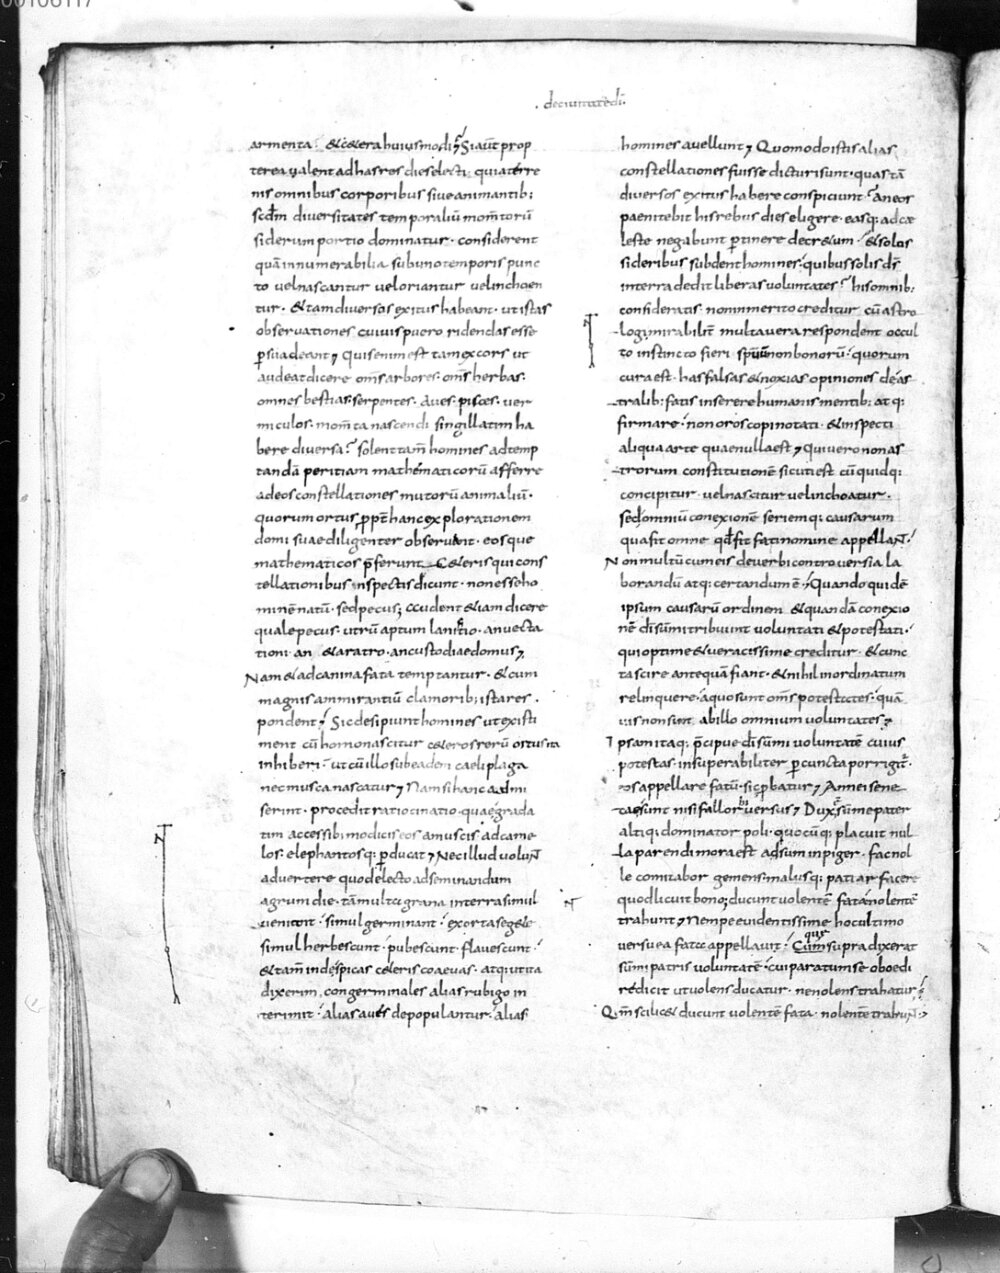 00106117
. deciuitatedi.
armenta. & c&era huiusmodi; Siaūt prop
terea ualent ad has res dies electi. quia terre
nis omnibus corporibus siue animantib:
scdm diuersitates temporaliū momtorū
siderum portio dominatur. considerent
quā innumerabilia sub uno temporis punc
to uel nascantur uel oriantur uel inchoen
tur. & tam diuersos exitus habeant. ut istas
obseruationes cuiuis puero ridendas esse
p suadeant; Quis enim est tam excors ut
audeat dicere oms arbores. oms herbas.
omnes bestias. serpentes. aues. pisces. uer
miculos. momta nascendi singillatim ha
bere diuersa? solent tam homines ad temp
tandā peritiam mathematicorū afferre
ad eos constellationes mutorū animaliū.
quorum ortus ppt hanc explorationem
domi suae diligenter obseruant. eosque
mathematicos pferunt c&eris qui cons
tellationibus inspectis dicunt. non esse ho
minē natū. sed pecus; audent &iam dicere
quale pecus. utrū aptum lanitio. an uecta
tioni. an & aratro. an custodiae domus;
Nam & ad canina fata temptantur. & cum
magnis ammirantiū clamorib: ista res
pondent; Sic desipiunt homines ut existi
ment cū homo nascitur c&eros rerū ortus ita
inhiberi. ut cū illo sub eadem caeli plaga
nec musca nascatur; Nam si hanc admi
serint. procedit ratiocinatio. quae grada
tim accessib: modicis eos a muscis ad came
los. elephantosq: pducat; Nec illud uolunt
aduertere quod electo ad seminandum
agrum die. tā multa grana in terra simul
ueniunt. simul germinant. exorta seg&e
simul herbescunt. pubescunt. flauescunt.
& tam inde spicas c&eris coaeuas. atq: ut ita
dixerim. congerminales alias rubigo in
terimit. alias aues depopulantur. alias
homines auellunt; Quomodo istis alias
constellationes fuisse dicturi sunt. quas tā
diuersos exitus habere conspiciunt? An eos
paenitebit his rebus dies eligere. easq: ad cae
leste negabunt ptinere decr&um. & solos
sideribus subdent homines. quibus solis ds
in terra dedit liberas uoluntates? his omnib:
consideratis. non inmerito creditur cū astro
logi mirabilit multa uera respondent occul
to instincto fieri spuūm non bonorū. quorum
cura est. has falsas & noxias opiniones de as
tralib: fatis inserere humanis mentib: atq:
firmare. non oroscopi notati. & inspecti
aliqua arte quae nulla est; Qui uero non as
trorum constitutionē sicuti est cū quidq:
concipitur. uel nascitur uel inchoatur.
sed omniū conexionē seriemq: causarum
qua fit omne qd fit fati nomine appellant.
Non multū cum eis de uerbi controuersia la
borandū atq: certandum ē. Quando quidē
ipsum causarū ordinem & quandā conexio
nē di sūmi tribuunt uoluntati & potestati.
qui optime & ueracissime creditur. & cunc
ta scire antequā fiant. & nihil inordinatum
relinquere. a quo sunt oms potestates. quā
uis non sint ab illo omnium uoluntates;
Ipsam itaq: pcipue di sūmi uoluntatē cuius
potestas. insuperabiliter p cuncta porrigit.
eos appellare fatū. sic pbatur; Annei sene
cae sunt nisi fallor hi uersus; Dux sūme pater
altiq: dominator poli. quocūq: placuit nul
la parendi mora est adsum inpiger. fac nol
le comitabor gemens malusq: patiar facere
quod licuit bono; ducunt uolentē fata nolentē
trahunt; Nempe euidentissime hoc ultimo
uersu ea fata appellauit. que Cum supra dixerat
sūmi patris uoluntatē. cui paratum se oboedi
re dicit ut uolens ducatur. ne nolens trahatur.
Qm scilic& ducunt uolentē fata. nolentē trahunt;